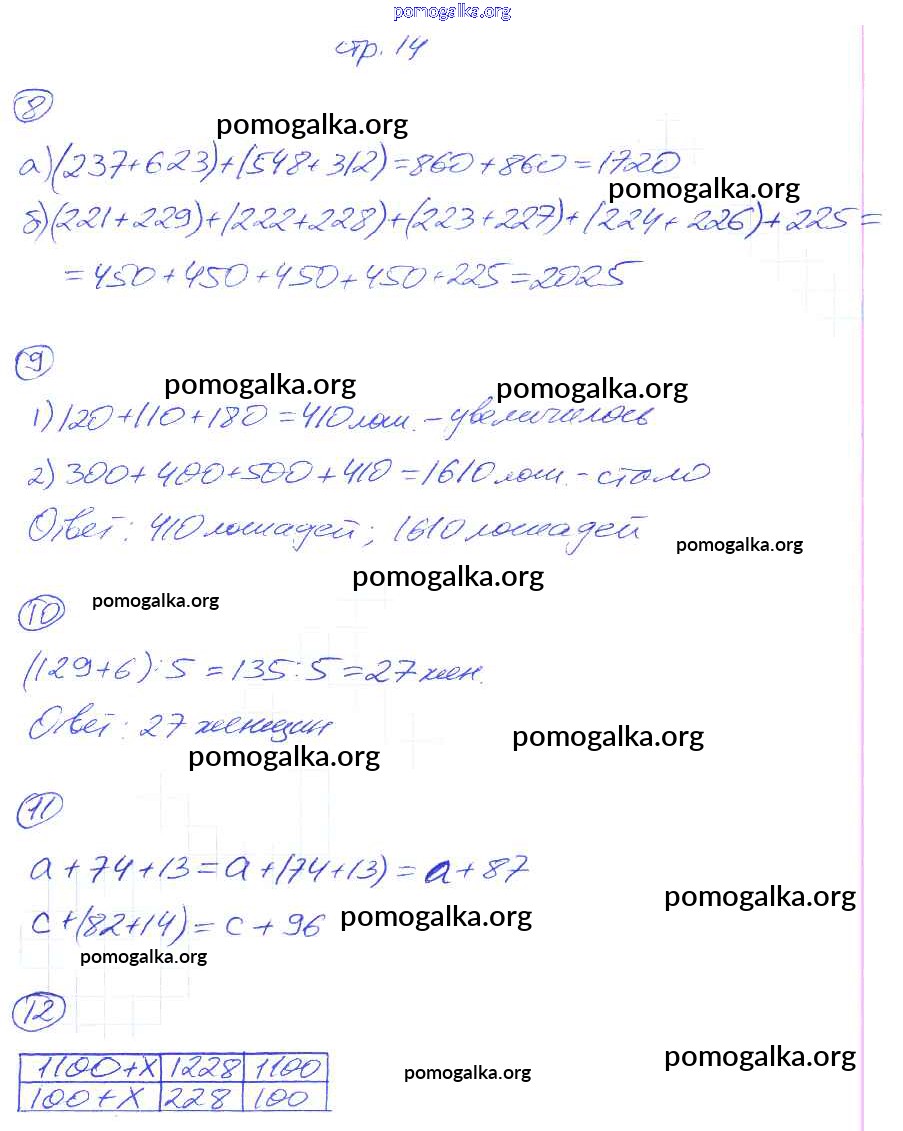 pomogalka.org
стр. 14
8
pomogalka.org
а) (237+623)+(548+312)=860+860=1720
pomogalka.org
б) (221+229)+(222+228)+(223+227)+(224+226)+225=
=450+450+450+450+225=2025
9
pomogalka.org pomogalka.org
1) 120+110+180=410 лош. - увеличилось
2) 300+400+500+410=1610 лош. - стало
Ответ: 410 лошадей; 1610 лошадей
pomogalka.org
pomogalka.org
10 pomogalka.org
(129+6):5=135:5=27 жен.
Ответ: 27 женщин
pomogalka.org
pomogalka.org
11
a+74+13=a+(74+13)=a+87
pomogalka.org
c+(82+14)=c+96 pomogalka.org
pomogalka.org
12
pomogalka.org
1100+x 1228 1100
pomogalka.org
100+x 228 100